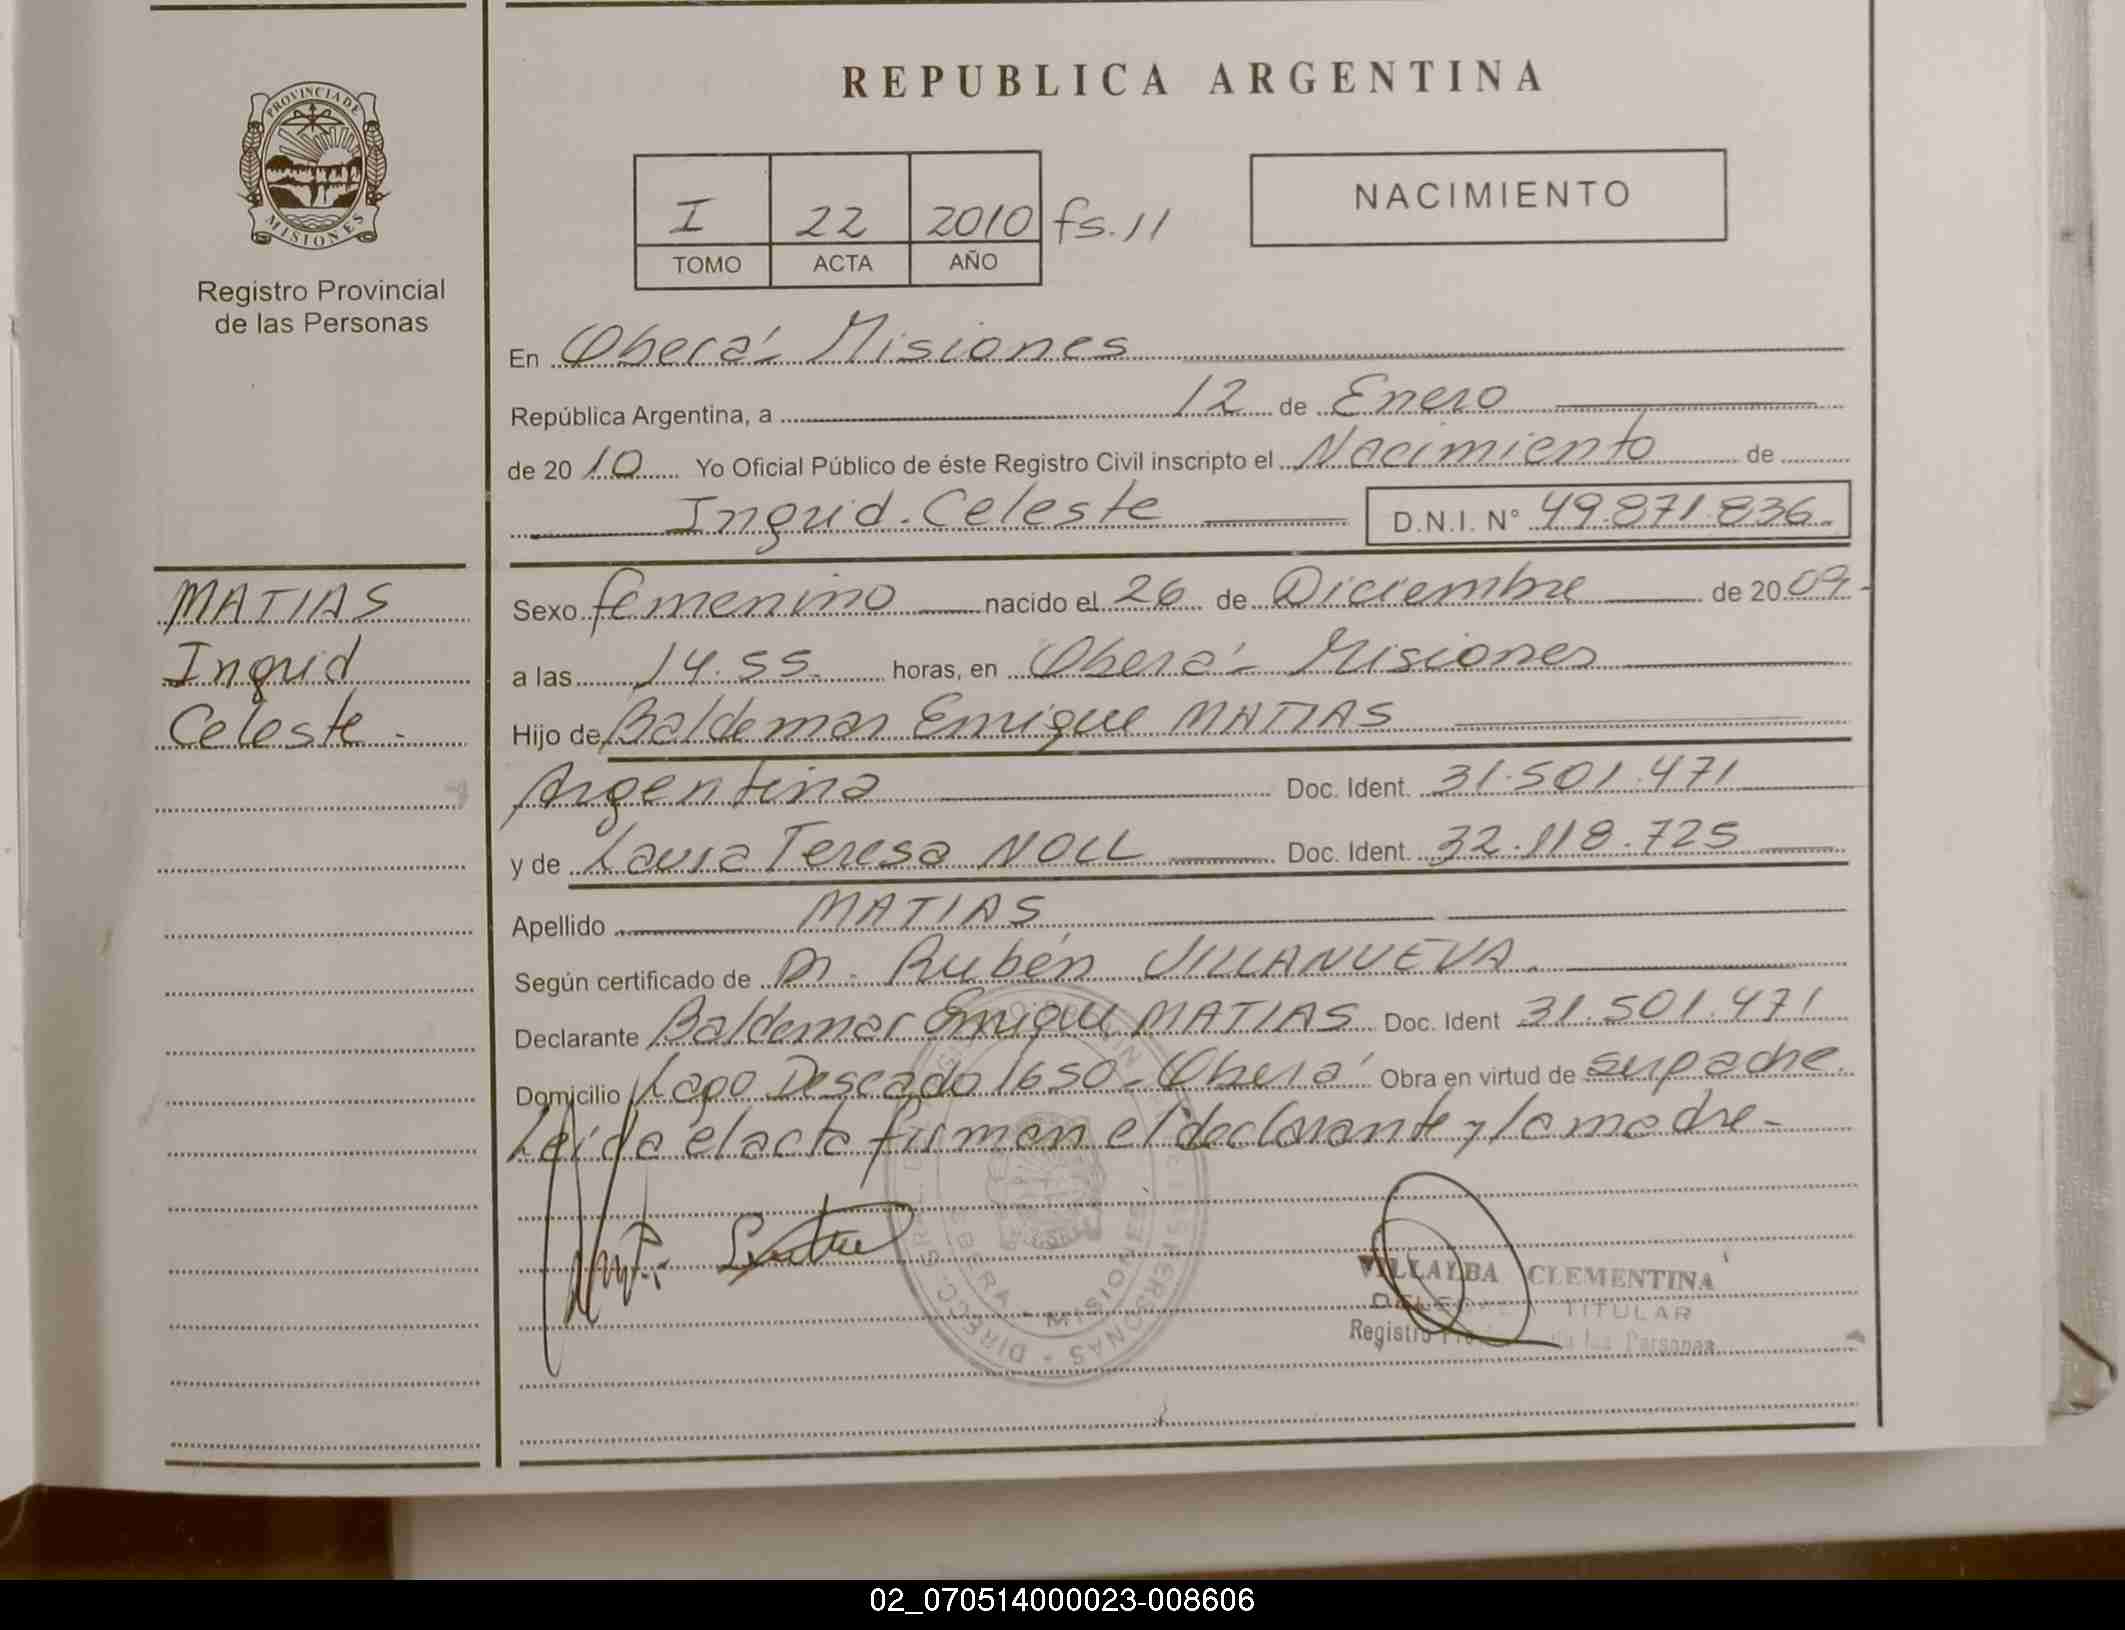 REPUBLICA ARGENTINA
PROVINCIA DE
MISIONES
Registro Provincial
de las Personas
I 22 2010 fs. 11
TOMO ACTA AÑO
NACIMIENTO
En Oberá - Misiones
República Argentina, a 12 de Enero
de 20 10 Yo Oficial Público de éste Registro Civil inscripto el Nacimiento de
Ingrid Celeste D.N.I. N° 49.871.836
MATIAS
Ingrid
Celeste -
Sexo femenino nacido el 26 de Diciembre de 20 09 -
a las 14.55 horas, en Oberá - Misiones
Hijo de Baldemar Enrique MATIAS
Argentina Doc. Ident. 31.501.471
y de Laura Teresa NOLL Doc. Ident. 32.118.725
Apellido MATIAS
Según certificado de Dr. Rubén VILLANUEVA
Declarante Baldemar Enrique MATIAS Doc. Ident 31.501.471
Domicilio Lago Deseado 1650 - Oberá Obra en virtud de ser padre.
Leída el acta firman el declarante y la madre -
VILLALBA CLEMENTINA
TITULAR
02_070514000023-008606